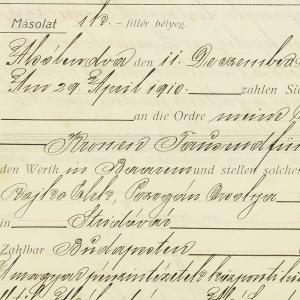 Másolat 1 ko. – fillér bélyeg.
Alsólendva den 11. Dezember
Am 29. April 1910. zahlen Sie
an die Ordre meine
Kronen Tausendfün
den Werth in Baarem und stellen solche
Bajka Elek, Pozogán Orsolya
in Stridóvár
Zahlbar Budapesten
A magyar pénzintézetek központi hi